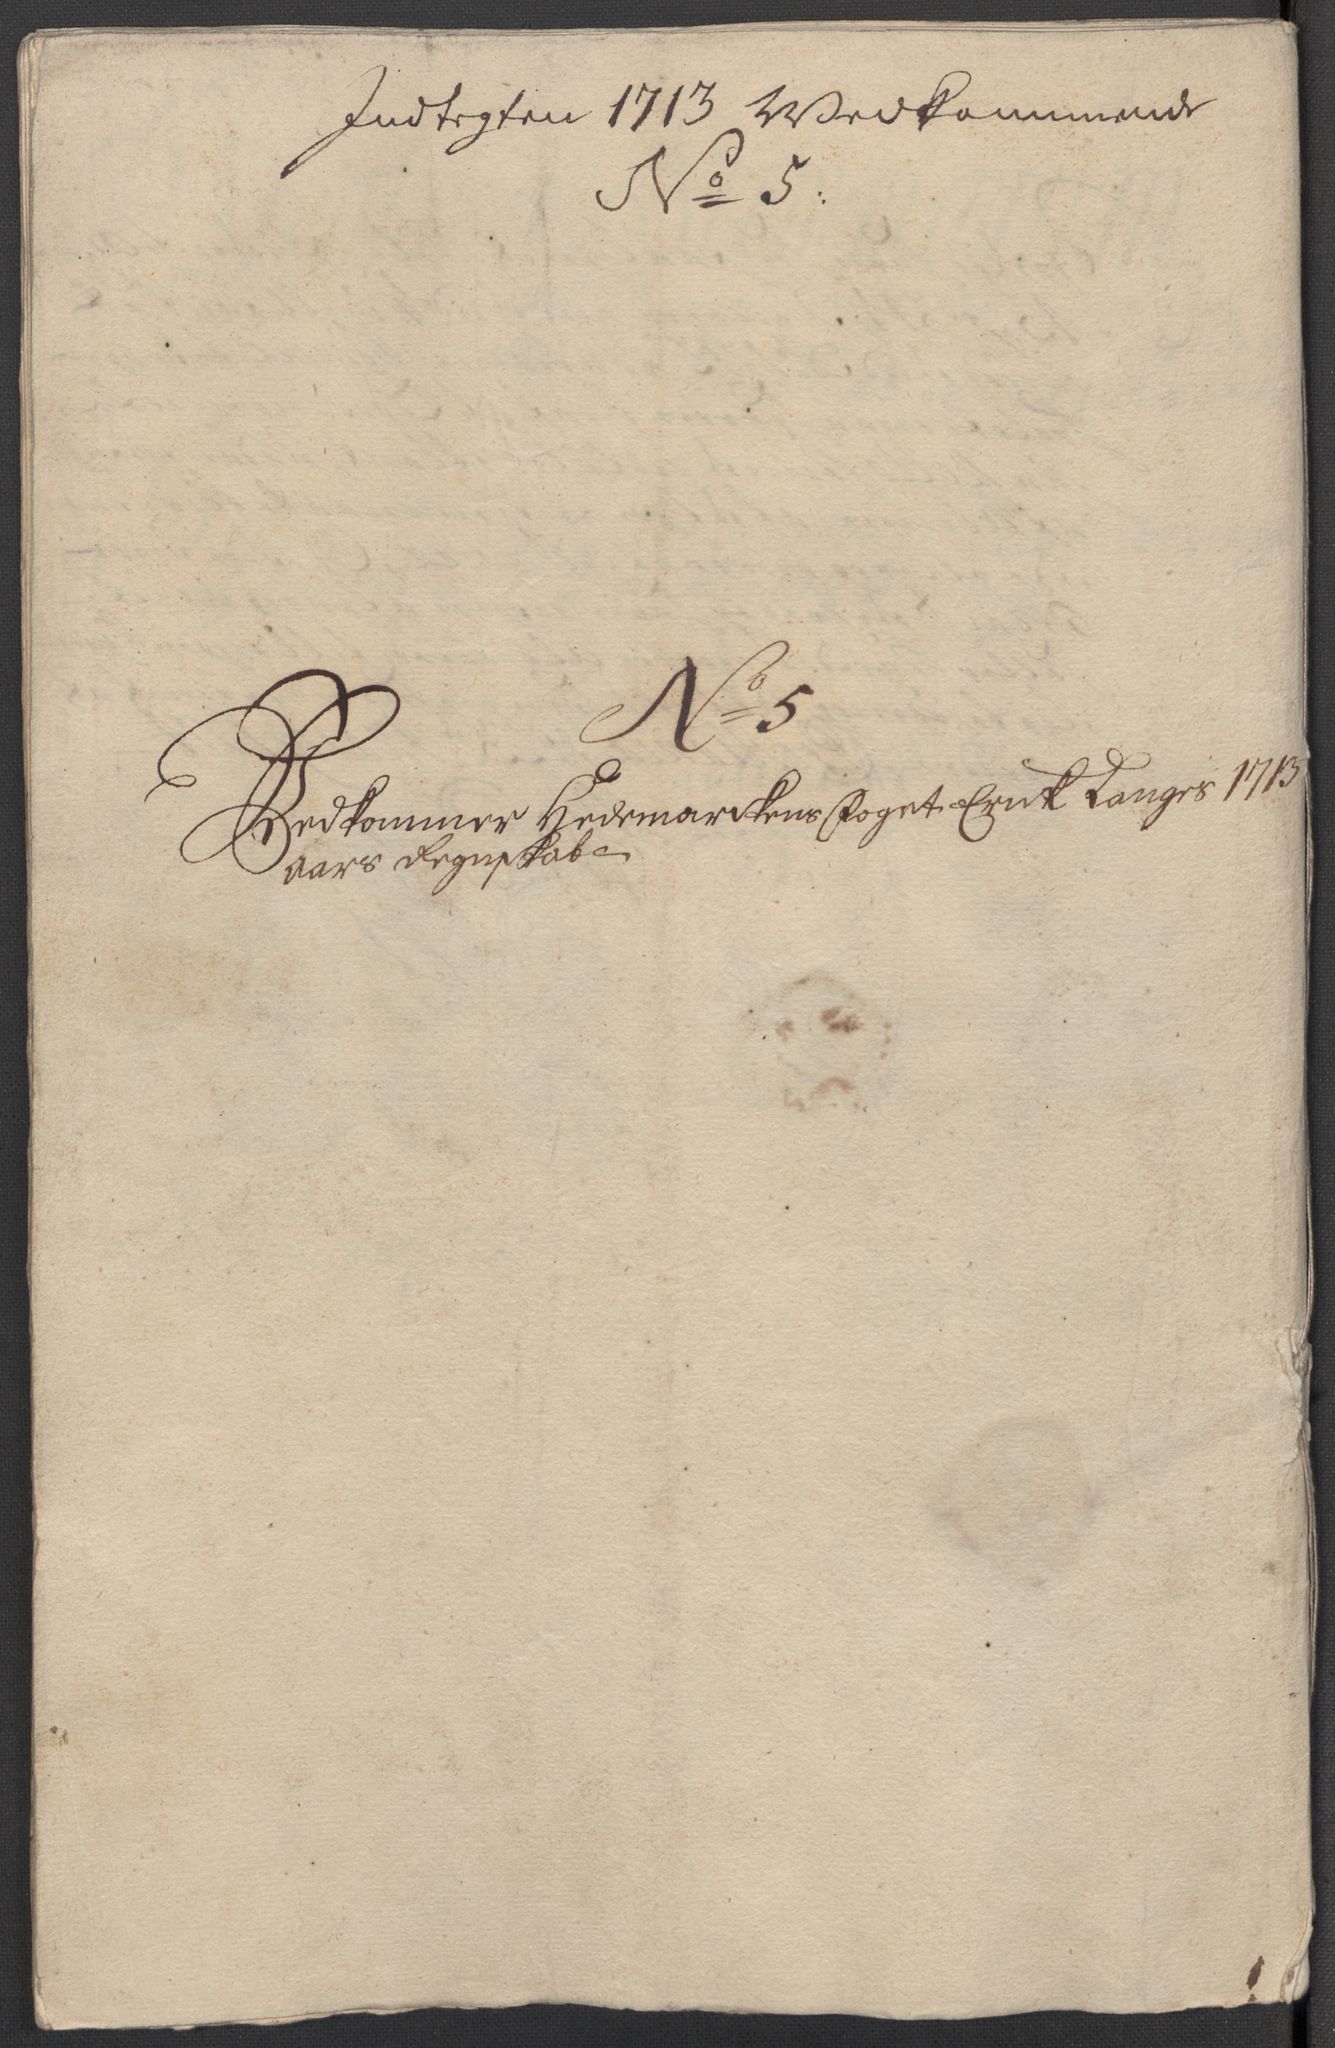 Indtegten 1713 Wedkommende
No 5:
No 5
Vedkommer Hedemarckens Foget Erick Langes 1713
aars Regnskab